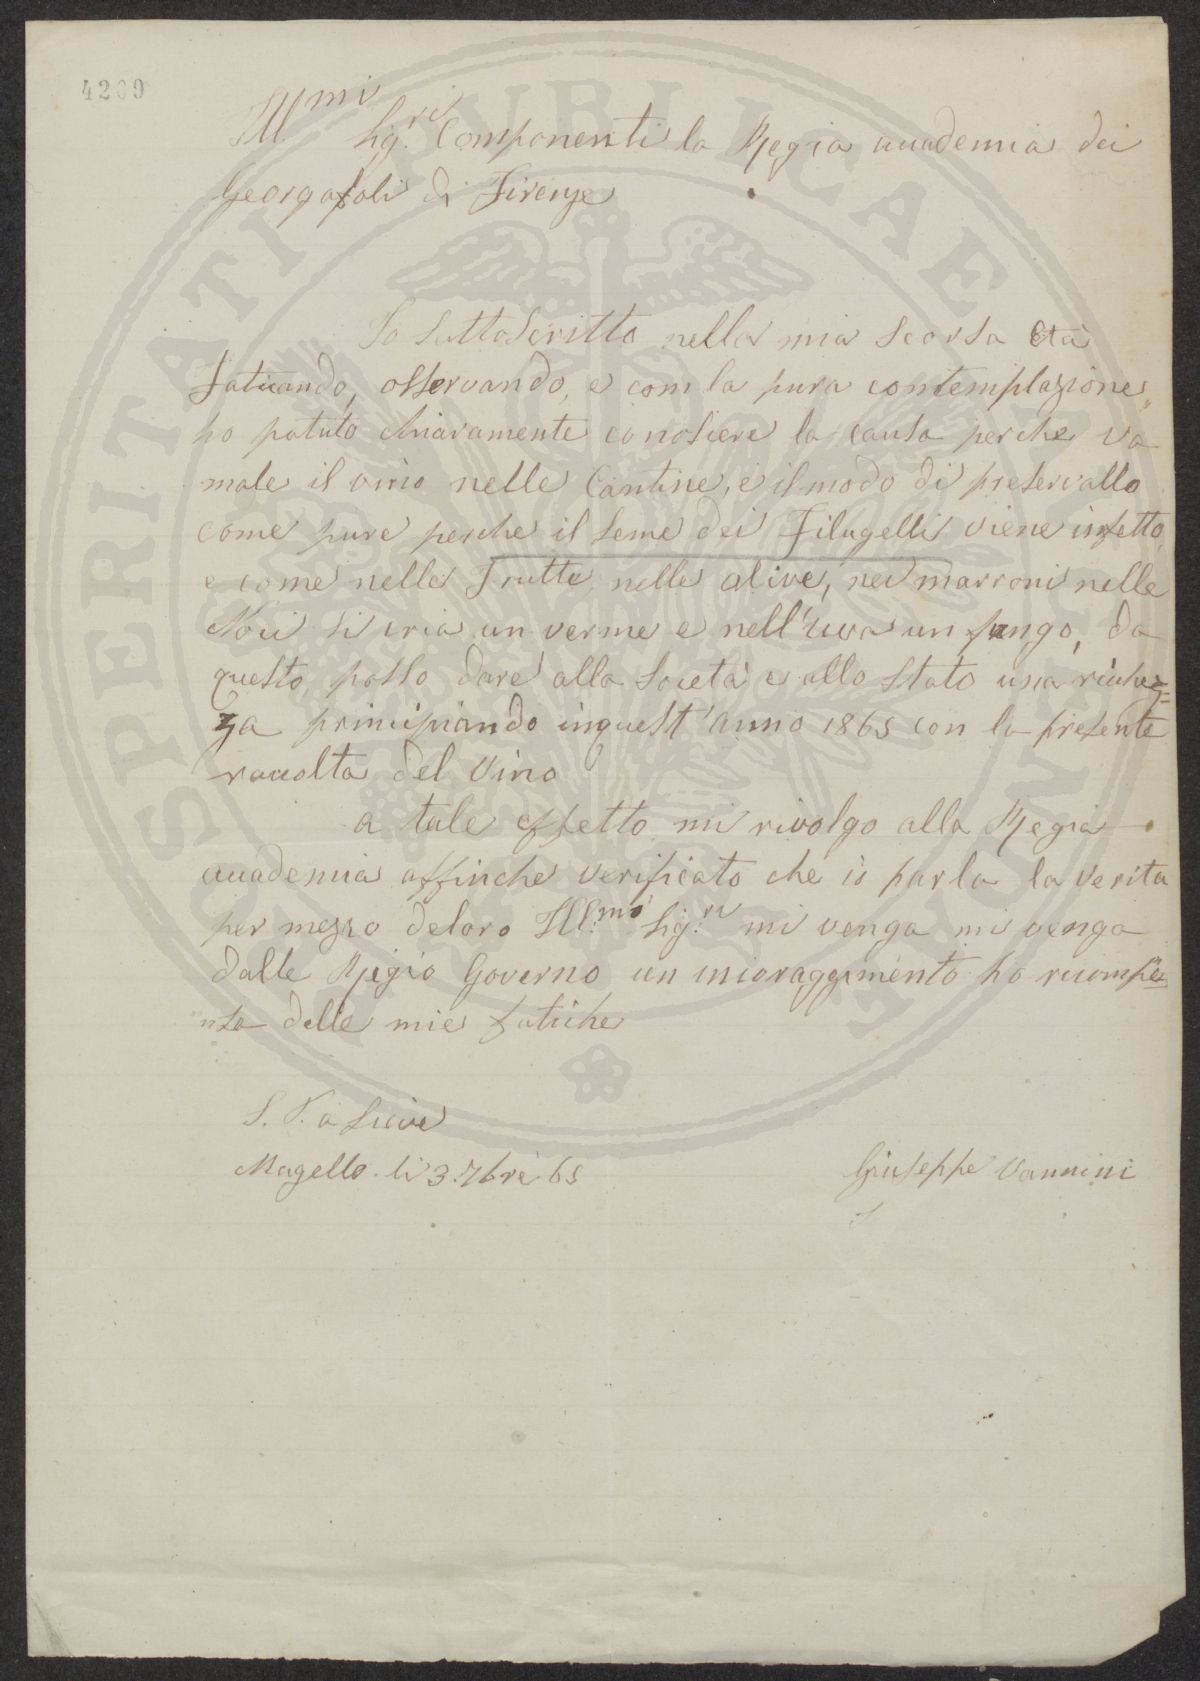 4209
Ill.mi Sig.ri Componenti la Regia accademia dei
Georgofoli di Firenze
Io Sottoscritto nella mia Scorsa Età
Faticando, osservando, e com la pura contemplazione,
ho potuto chiaramente conosiere la causa perche va
male il vino nelle Cantine, e il modo di preservallo
come pure perche il seme dei Filugelli viene infetto,
e come nelle Frutte, nelle olive, nei marroni nelle
Noci si cria un verme e nell'uva un fungo, da
questo, posso dare alla Società e allo Stato una riche=
za principiando inquest'anno 1865 con la presente
raccolta del Vino
a tale effetto mi rivolgo alla Regia
accademia affinche verificato che io parla la verita
per mezzo deloro Ill.mi Sig.ri mi venga mi venga
dalle Regio Governo un incoraggimento ho ricompe=
nsa delle mie fatiche
S. P. a Sieve
Mugello li 3. 7bre 65
Giuseppe Vannini
PROSPERITATI PUBLICAE AUGENDAE